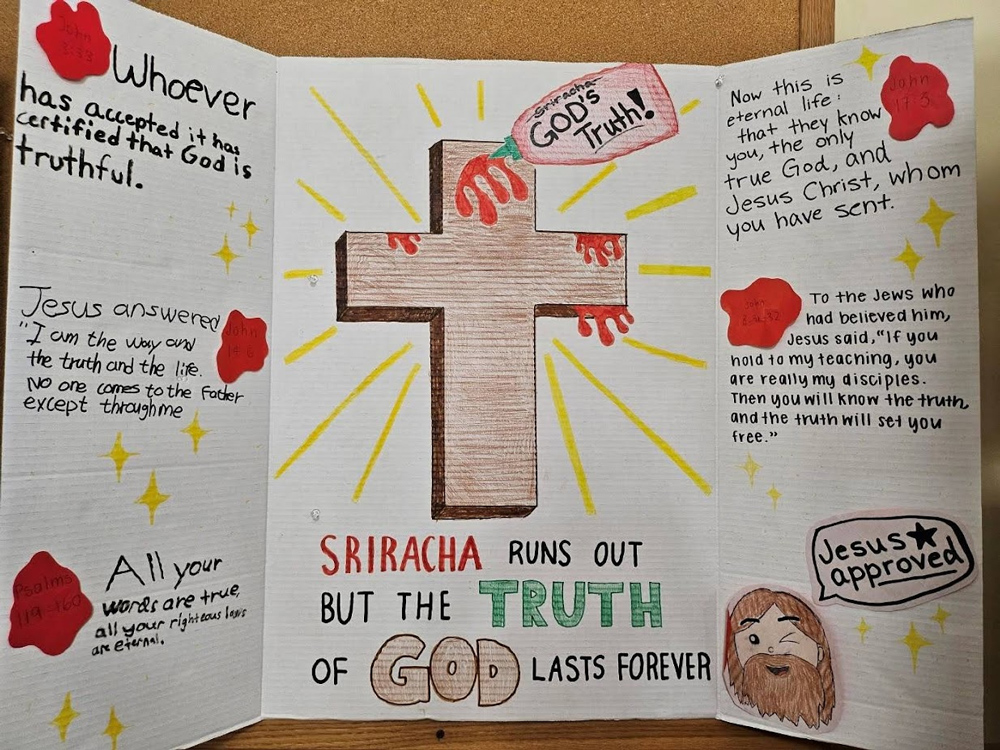 John
3:33
Whoever
has accepted it has
certified that God is
truthful.
Jesus answered
"I am the way and
the truth and the life.
No one comes to the Father
except through me
John
14:6
Psalms
119:160
All your
words are true,
all your righteous laws
are eternal.
Sriracha
GOD's
Truth!
SRIRACHA RUNS OUT
BUT THE TRUTH
OF GOD LASTS FOREVER
Now this is
eternal life:
that they know
you, the only
true God, and
Jesus Christ, whom
you have sent.
John
17:3
John
To the Jews who
had believed him,
Jesus said, "If you
hold to my teaching, you
are really my disciples.
Then you will know the truth,
and the truth will set you
free."
Jesus
approved